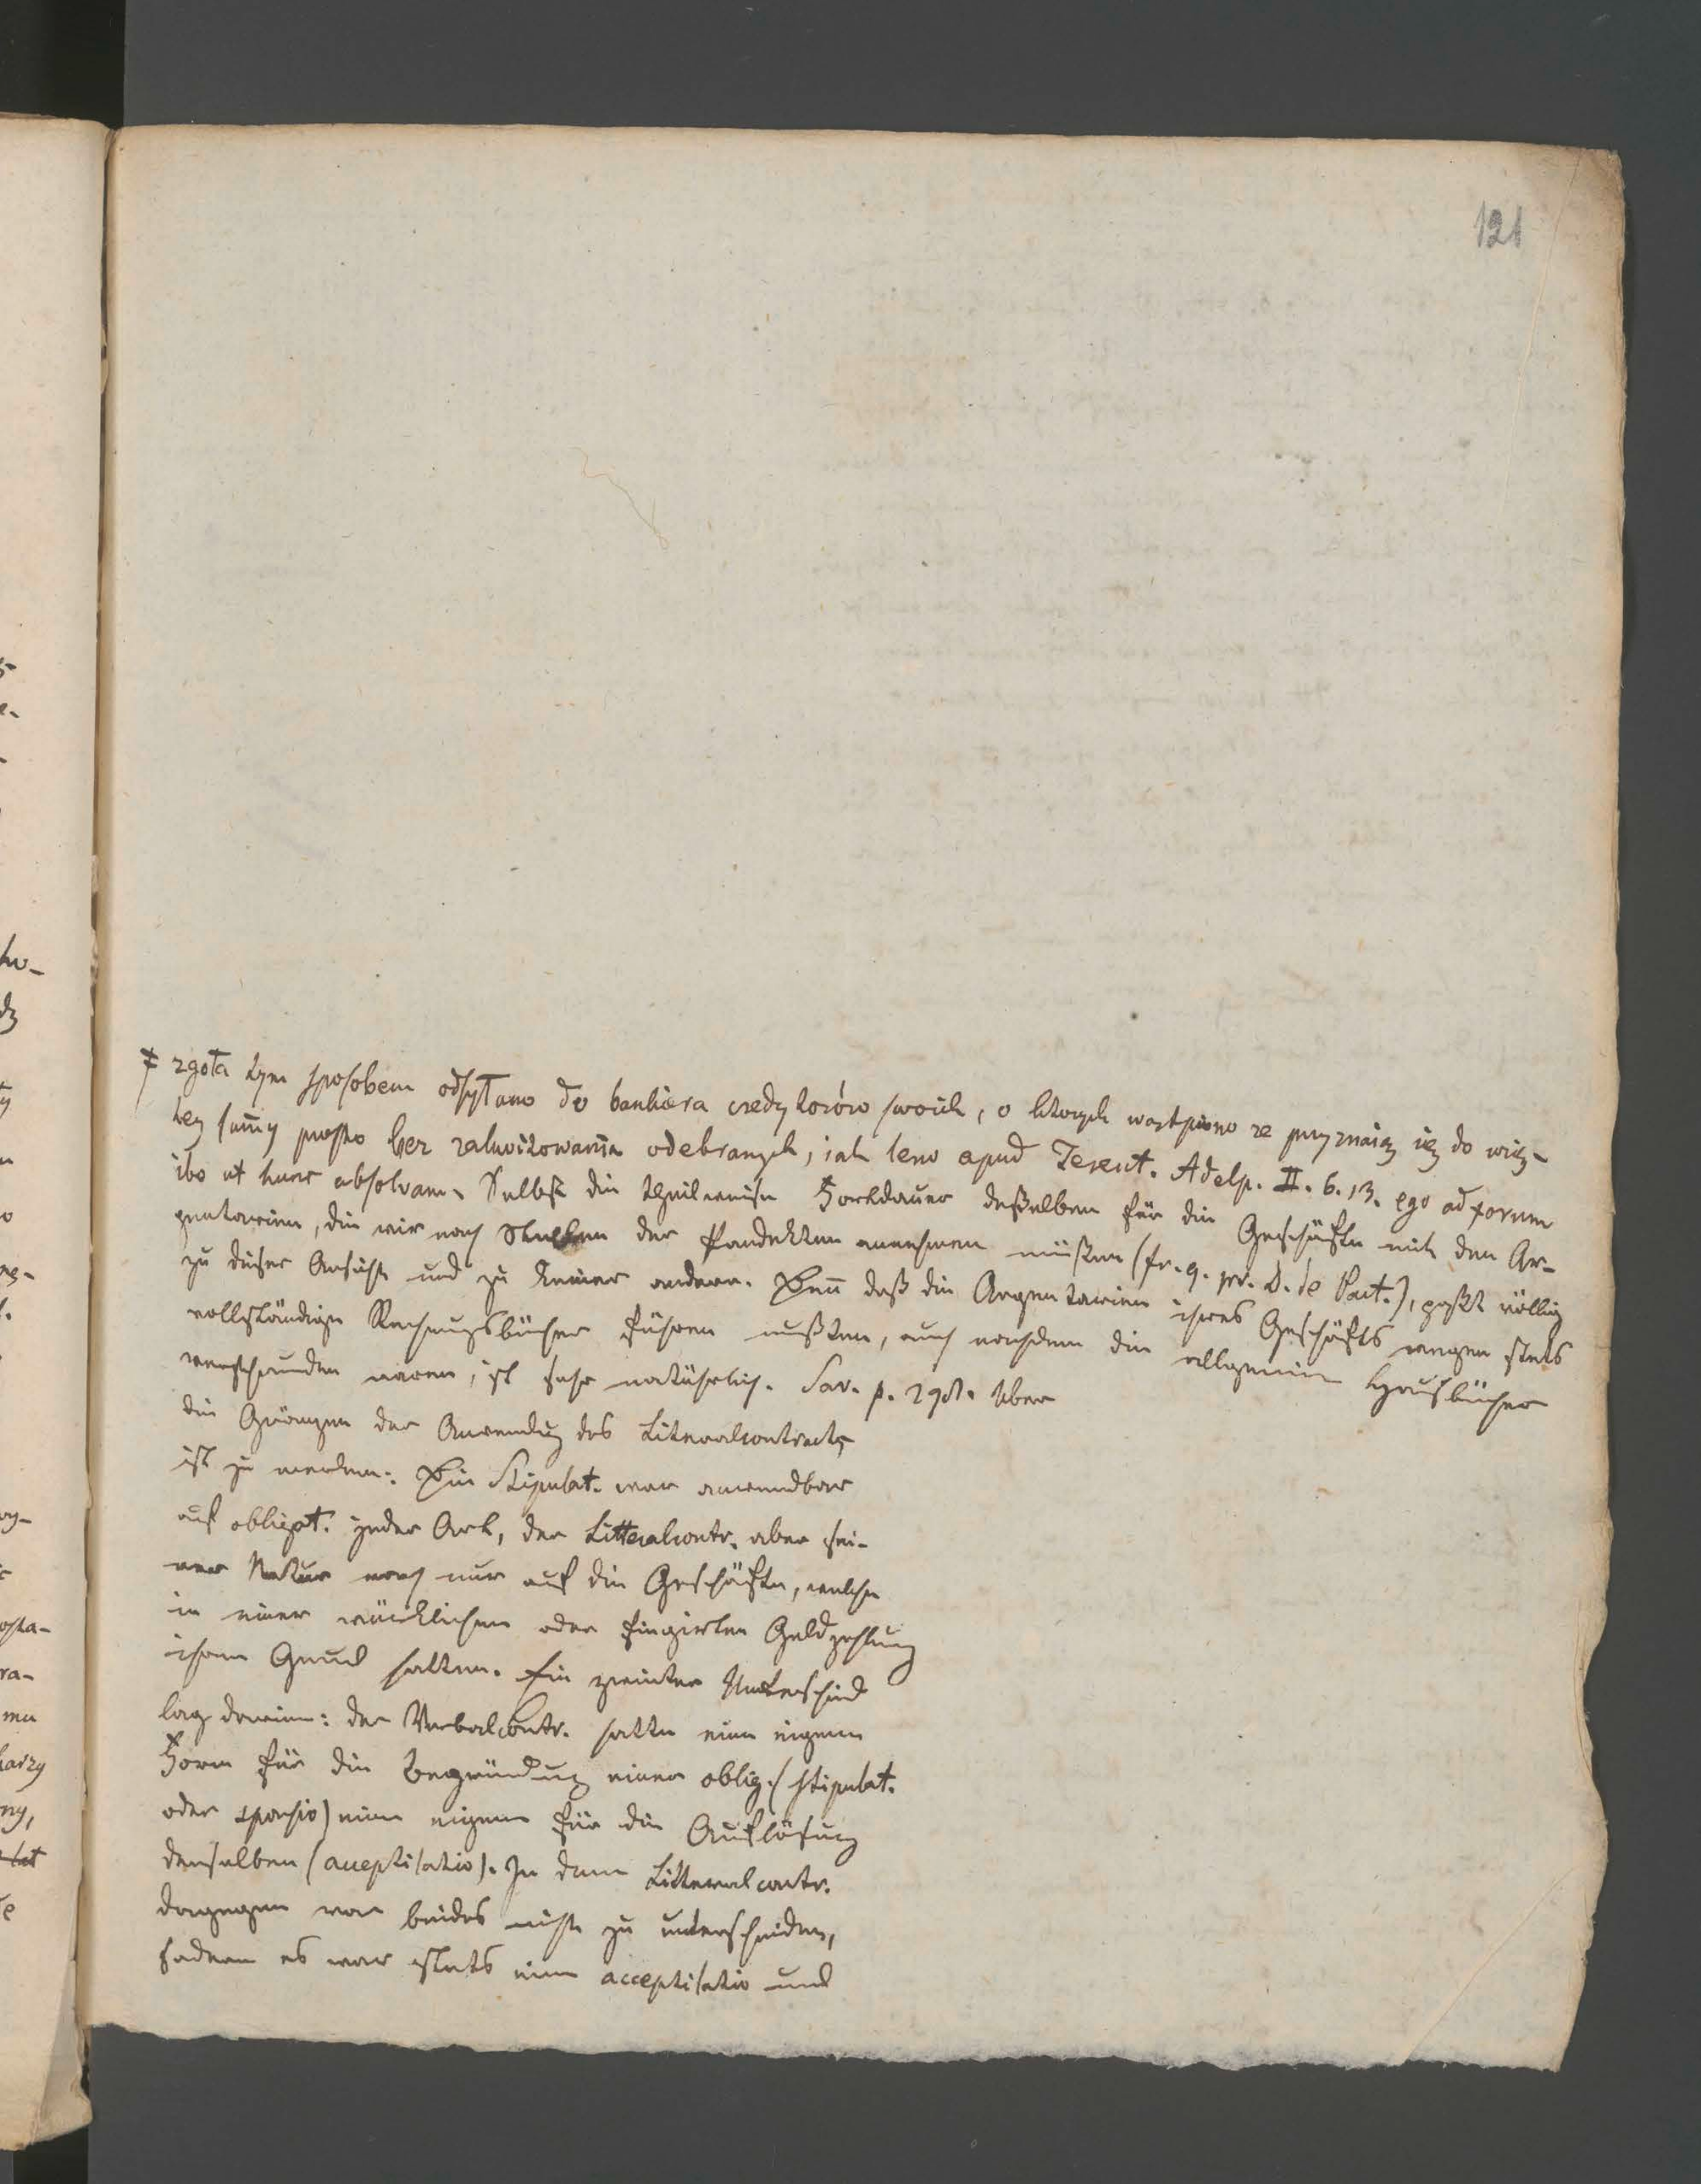 121
‡ zgoła tym sposobem odsyłano do bankiera credytorów swoich, o ktorych wątpiono ze przyznaią się do wię-
tey sum̄y prosto bez zakwitowania odebranych, iak leno apud Terent. Adelp. II. 6. 13. ego ad forum
ibo ut hunc absolvam. Selbst die theilweise Fortdauer deßelben für die Geschäfte mit den Ar-
gentarien, die wir nach Stellen der Pandekten annehmen müßten (fr. 9. pr. D. de Pact.), paßt völlig
zu dieser Ansicht und zu keiner andern. Den̄ daß die Argentarien ihres Geschäfts wegen stets
vollständige Rechnungsbücher führen mußten, auch nachdem die allgemeine Hausbücher
verschwunden waren, ist sehr natürlich. Sav. p. 298. Uber
die Gränzen der Anwendung des Literalcontracts
ist zu merken: Die Stipulat. war anwendbar
auf obligat. jeder Art, der Litteralcontr. aber sei-
ner Natur nach nur auf die Geschäfte, welche
in einer würklichen oder fingirten Geldzahlung
ihren Grund hatten. Ein zweiter Unterschied
lag darinn: der Verbalcontr. hatte eine eigene
Form für die Begründung einer oblig. (stipulat.
oder sponsio) eine eigene für die Auflösung
derselben (acceptilatio). In dem Litteralcontr.
dagegen war beides nicht zu unterscheiden,
sondern es war stets eine acceptilatio und